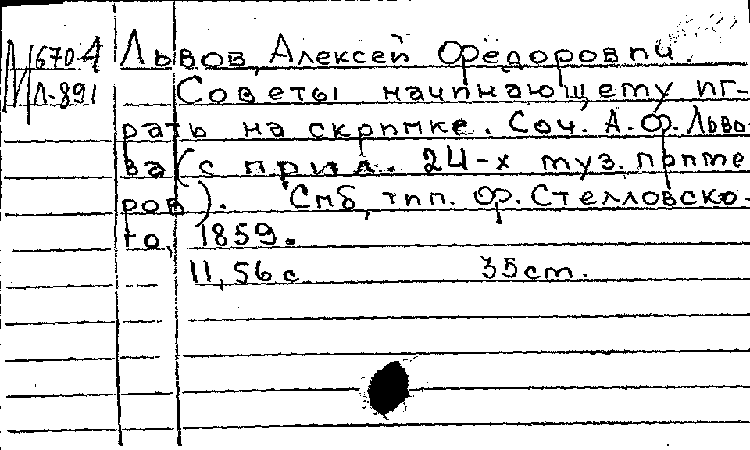 М 670-4 Львов, Алексей Фёдорович.
Л-891 Советы начинающему иг-
рать на скрипке. Соч. А. Ф. Льво-
ва (с прил. 24-х муз. приме
ров). Спб, тип. Ф. Стелловско-
го, 1859.
II, 56 с. 35 см.